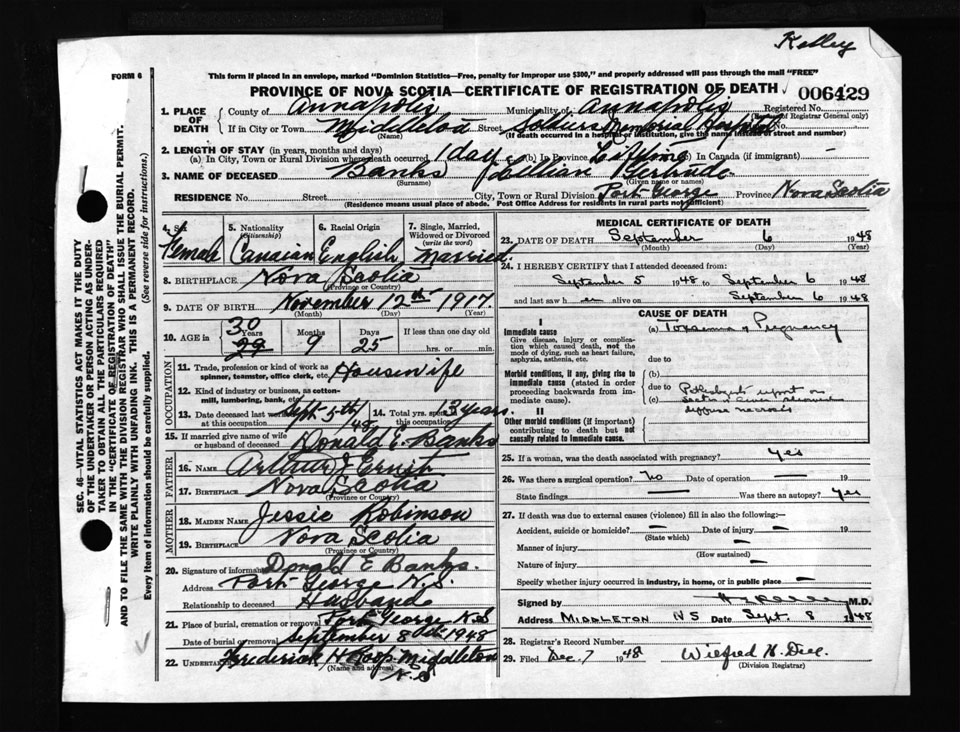 Kelley
This form if placed in an envelope, marked "Dominion Statistics—Free, penalty for improper use $300," and properly addressed will pass through the mail "FREE"
FORM 6
PROVINCE OF NOVA SCOTIA—CERTIFICATE OF REGISTRATION OF DEATH 006429
1. PLACE OF DEATH County of Annapolis Municipality of Annapolis Registered No.
(Use of Registrar General only)
If in City or Town Middleton Street Soldiers Memorial Hospital No.
(Name) (If death occurred in a hospital or institution, give the name instead of street and number)
2. LENGTH OF STAY (in years, months and days)
(a) In City, Town or Rural Division where death occurred 1 day (b) In Province Lifetime (c) In Canada (if immigrant) —
3. NAME OF DECEASED Banks Lillian Gertrude
(Surname) (Given name or names)
RESIDENCE No. Street City, Town or Rural Division Port George Province Nova Scotia
(Residence means usual place of abode. Post Office Address for residents in rural parts not sufficient)
4. Sex Female
5. Nationality (Citizenship) Canaian
6. Racial Origin English
7. Single, Married, Widowed or Divorced (write the word) Married
8. BIRTHPLACE Nova Scotia
(Province or Country)
9. DATE OF BIRTH November 12th 1917
(Month) (Day) (Year)
10. AGE in 30 29 Years 9 Months 25 Days If less than one day old hrs. or min.
OCCUPATION
11. Trade, profession or kind of work as spinner, teamster, office clerk, etc. Housewife
12. Kind of industry or business, as cotton-mill, lumbering, bank, etc.
13. Date deceased last worked at this occupation Sept 5th/48
14. Total yrs. spent in this occupation 13 years.
15. If married give name of wife or husband of deceased Donald E. Banks
FATHER
16. NAME Arthur J Ernst
17. BIRTHPLACE Nova Scotia
(Province or Country)
MOTHER
18. MAIDEN NAME Jessie Robinson
19. BIRTHPLACE Nova Scotia
(Province or Country)
20. Signature of informant Donald E Banks.
Address Port George N.S.
Relationship to deceased Husband
21. Place of burial, cremation or removal Port George N.S
Date of burial or removal September 8th 1948
22. UNDERTAKER Frederick H Roop. Middleton
(Name and address) N.S
MEDICAL CERTIFICATE OF DEATH
23. DATE OF DEATH September 6 1948
(Month) (Day) (Year)
24. I HEREBY CERTIFY that I attended deceased from:
September 5 1948 to September 6 1948
and last saw her alive on September 6 1948
CAUSE OF DEATH
I
Immediate cause
Give disease, injury, or complication which caused death, not the mode of dying, such as heart failure, asphyxia, asthenia, etc.
(a) Toxaemia of Pregnancy
due to
Morbid conditions, if any, giving rise to immediate cause (stated in order proceeding backwards from immediate cause).
(b)
due to
(c) Pathologists report on section of diffuse necrosis
II
Other morbid conditions (if important) contributing to death but not causally related to immediate cause.
25. If a woman, was the death associated with pregnancy? Yes
26. Was there a surgical operation? No Date of operation — 19
State findings — Was there an autopsy? Yes
27. If death was due to external causes (violence) fill in also the following:—
Accident, suicide or homicide? — Date of injury — 19
(State which)
Manner of injury —
(How sustained)
Nature of injury —
Specify whether injury occurred in industry, in home, or in public place —
Signed by M.D.
Address MIDDLETON NS Date Sept. 8 1948
28. Registrar's Record Number
29. Filed Dec. 7 1948 Wilfred H. Dill
(Division Registrar)
SEC. 46—VITAL STATISTICS ACT MAKES IT THE DUTY
OF THE UNDERTAKER OR PERSON ACTING AS UNDER-
TAKER TO OBTAIN ALL THE PARTICULARS REQUIRED
IN THE "CERTIFICATE OF REGISTRATION OF DEATH"
AND TO FILE THE SAME WITH THE DIVISION REGISTRAR WHO SHALL ISSUE THE BURIAL PERMIT.
WRITE PLAINLY WITH UNFADING INK. THIS IS A PERMANENT RECORD.
Every item of information should be carefully supplied. (See reverse side for instructions.)